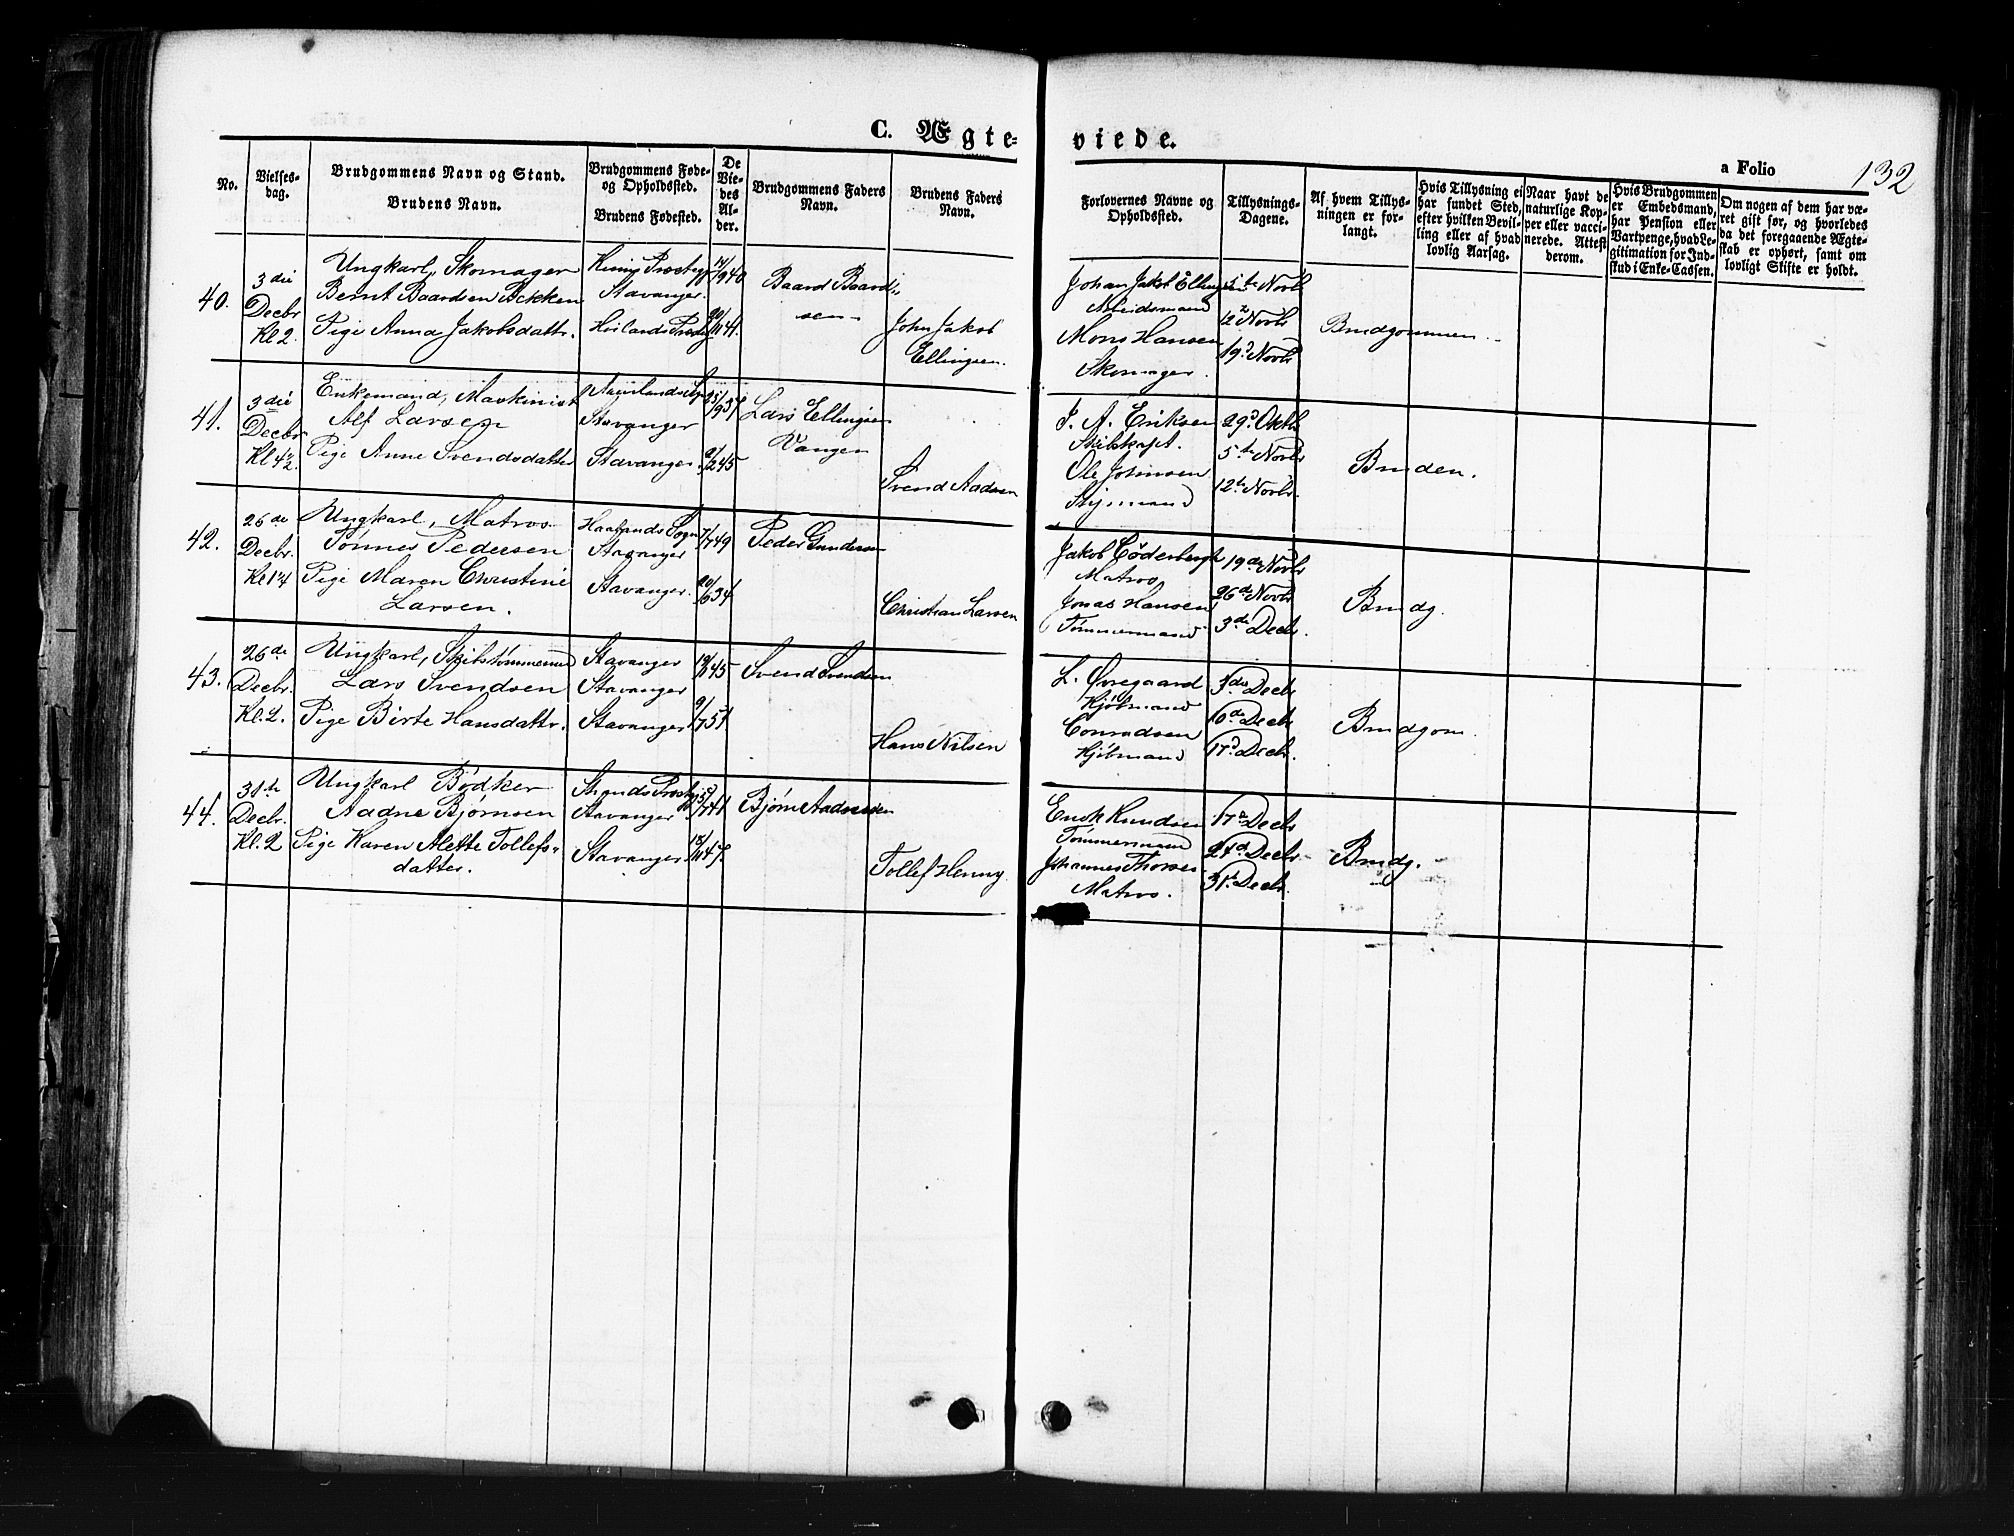 C. Ægte-
viede.
a Folio
132
No.
Vielses-
dag.
Brudgommens Navn og Stand.
Brudens Navn.
Brudgommens Føde-
og Opholdssted.
Brudens Fødested.
De
Vie-
des
Al-
der.
Brudgommens Faders
Navn.
Brudens Faders
Navn.
Forlovernes Navne og
Opholdssted.
Tillysnings-
Dagene.
Af hvem Tillys-
ningen er for-
langt.
Hvis Tillysning ei
har fundet Sted,
efter hvilken Bevil-
ling eller af hvad
lovlig Aarsag.
Naar havt de
naturlige Kop-
per eller vacci-
nerede. Attest
derom.
Hvis Brudgommen
er Embedsmand,
har Pension eller
Vartpenge, hvad Le-
gitimation for Ind-
skud i Enke-Cassen.
Om nogen af dem har væ-
ret gift før, og hvorledes
da det foregaaende Ægte-
skab er ophørt, samt om
lovligt Skifte er holdt.
40.
3die
Decbr
Kl 2.
Ungkarl, Skomager
Bernt Baardsen
Pige Anna Jakobsdattr.
Stavanger.
Baard Baard-
sen
John Jakob
Ellingsen.
Johan Jakob Ellingsen
Arbeidsmand
Mons Hansen
Skomager.
5te Novb
12te Novbr
19d Novbr
Brudgommen
41.
3die
Decbr
Kl 4½
Enkemand, Maskinist
Alf Larsen
Pige Anne Svendsdatter
Stavanger
Stavanger.
Lars Ellingsen
Vangen
Svend Aadsen
J. A. Eriksen
Skibskapt.
Ole Johnsen
Styrmand
29d Oktb
5te Novbr
12te Novbr.
Bruden.
42.
26de
Decbr.
Ungkarl, Matros
Tönnes Pedersen
Pige Maren Christine
Larsen.
Haalands Sogn
Stavanger
Stavanger.
7/7 49
Peder Gundersen
Christian Larsen
Matros
Jonas Hansen
Tömmermand
19de Novbr
26de Novbr
3de Decbr.
Brudg.
43.
26de
Decbr.
Kl. 2.
Ungkarl, Skibstömmermd
Lars Svendsen
Pige Birte Hansdattr.
Stavanger
Stavanger
Stavanger
9/7 51
Svend Svendsen
Hans Nilsen
L. Øvregaard
Kjöbmand
Conradsen
Kjöbmand
3die Decbr
10de Decbr
17d Decbr.
Brudgom.
44.
31te
Decbr.
Kl. 2
Ungkarl Bødker
Aadne Bjørnsen
Pige Karen Alette Tollefs-
datter.
Stavanger
Stavanger.
Bjørn Aadnesen
Tollef Henny
Enok Knudsen
Tömmermand
Johannes Thorsen
Matros.
17de Decbr
24d Decbr
31te Decbr.
Brudg.